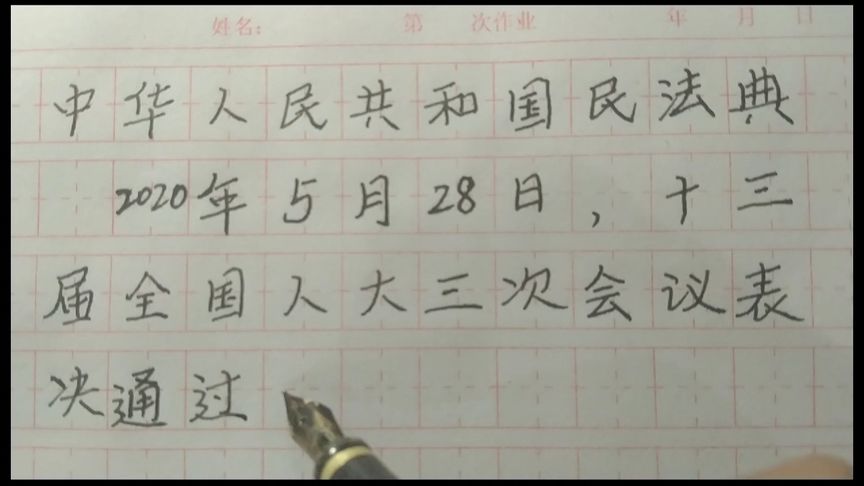 姓名： 第 次作业 年 月 日
中华人民共和国民法典
2020年5月28日，十三
届全国人大三次会议表
决通过